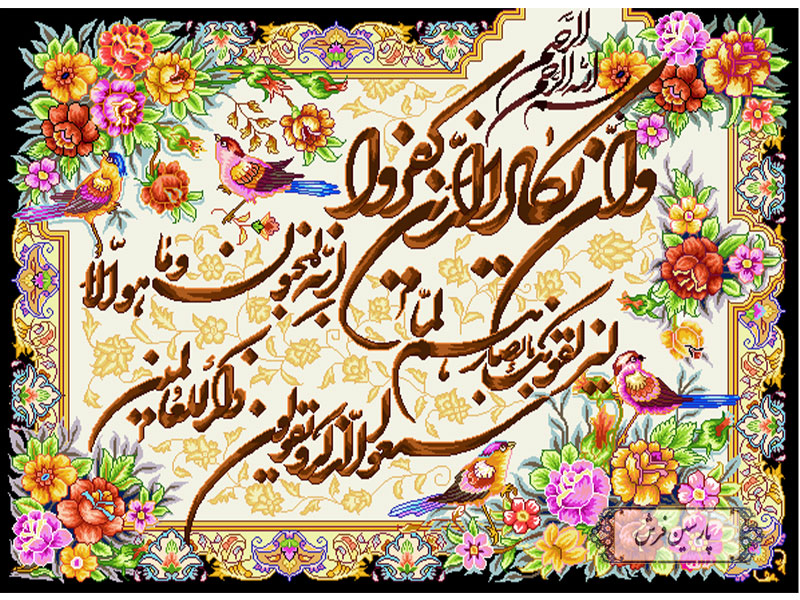 بسم الله الرحمن الرحیم
وان یکاد الذین کفروا
لیزلقونک بابصارهم لما
سمعوا الذکر و یقولون
انه لمجنون و ما هو الا
ذکر للعالمین
پارسین فرش